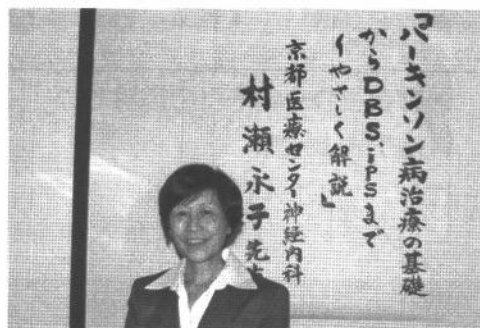 「パーキンソン病治療の基礎
からDBS、iPSまで
〜やさしく解説」
京都医療センター神経内科
村瀬永子先生